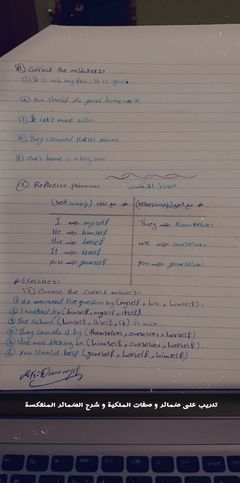 Correct the mistakes:
(1) It is not my pen. It is your.
(2) You should do yours home work
(3) It isn't mine villa.
(4) They cleaned rooms.
(5) Ours home is a big one.
(3) Reflexive pronouns
(self) (selves)
I → myself They → themselves
He → himself
She → herself we → ourselves
It → itself
You → yourself You → yourselves
* Exercises:
(1) Choose the correct answer:
① He answered the question by (myself, his, himself).
② I worked by (himself, myself, itself).
③ The school (himself, itself, ) is nice.
④ They can do it by (themselves, ourselves, herself).
⑤ She was talking to (himself, ourselves, herself).
⑥ You should help (yourself, herself, himself).
تدريب على ضمائر و صفات الملكية و شرح الضمائر المنعكسة